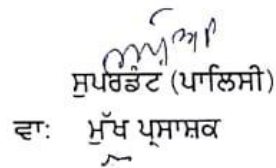 ਸੁਪਰਡੰਟ (ਪਾਲਿਸੀ)
ਵਾ: ਮੁੱਖ ਪ੍ਰਸਾਸ਼ਕ